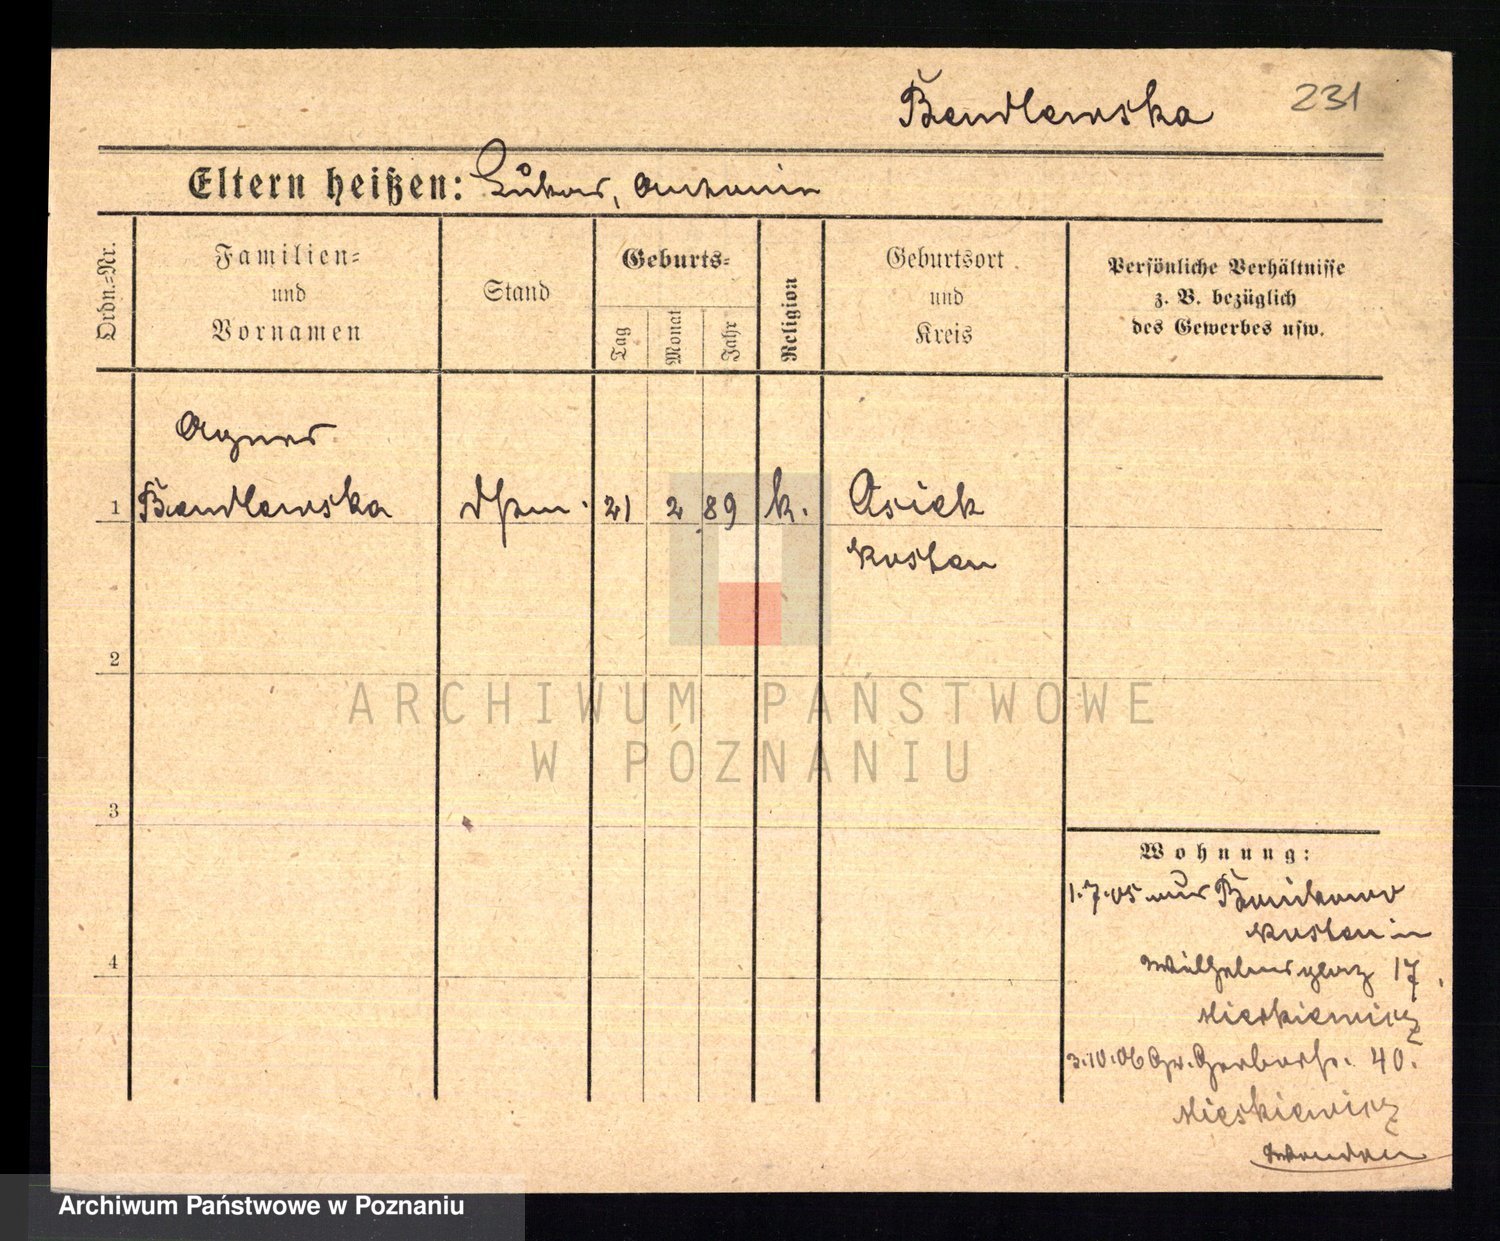 Bendlewska 231
Eltern heißen: Lukas, Antonie
Ordn.-Nr.
Familien-
und
Vornamen
Stand
Geburts-
Tag
Monat
Jahr
Religion
Geburtsort
und
Kreis
Persönliche Verhältnisse
z. B. bezüglich
des Gewerbes usw.
Agnes
1 Bendlewska 21 2 89 k.
Kosten
2
ARCHIWUM PAŃSTWOWE
W POZNANIU
3
4
Wohnung:
1.7.05 aus Bonikowo
Kosten in
Wilhelmsplatz 17
Mieskiewicz
3.10.06 Gr. Gerberstr. 40.
Mieskiewicz
Archiwum Państwowe w Poznaniu